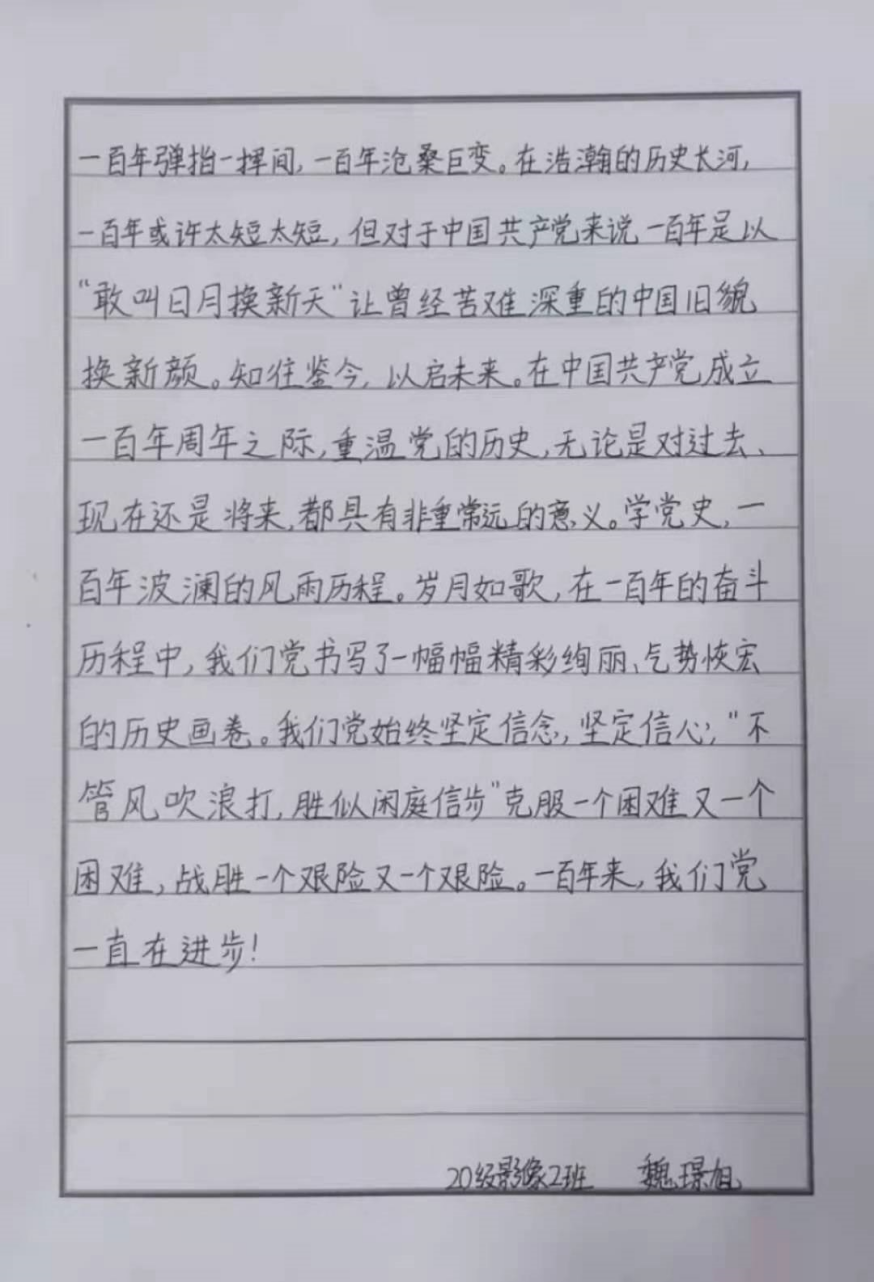 一百年弹指一挥间,一百年沧桑巨变。在浩瀚的历史长河,
一百年或许太短太短,但对于中国共产党来说一百年足以
“敢叫日月换新天”让曾经苦难深重的中国旧貌
换新颜。知往鉴今,以启未来。在中国共产党成立
一百年周年之际,重温党的历史,无论是对过去、
现在还是将来,都具有非重常远的意义。学党史,一
百年波澜的风雨历程。岁月如歌,在一百年的奋斗
历程中,我们党书写了一幅幅精彩绚丽、气势恢宏
的历史画卷。我们党始终坚定信念,坚定信心,“不
管风吹浪打,胜似闲庭信步”克服一个困难又一个
困难,战胜一个艰险又一个艰险。一百年来,我们党
一直在进步!
20级影像2班 魏璟旭